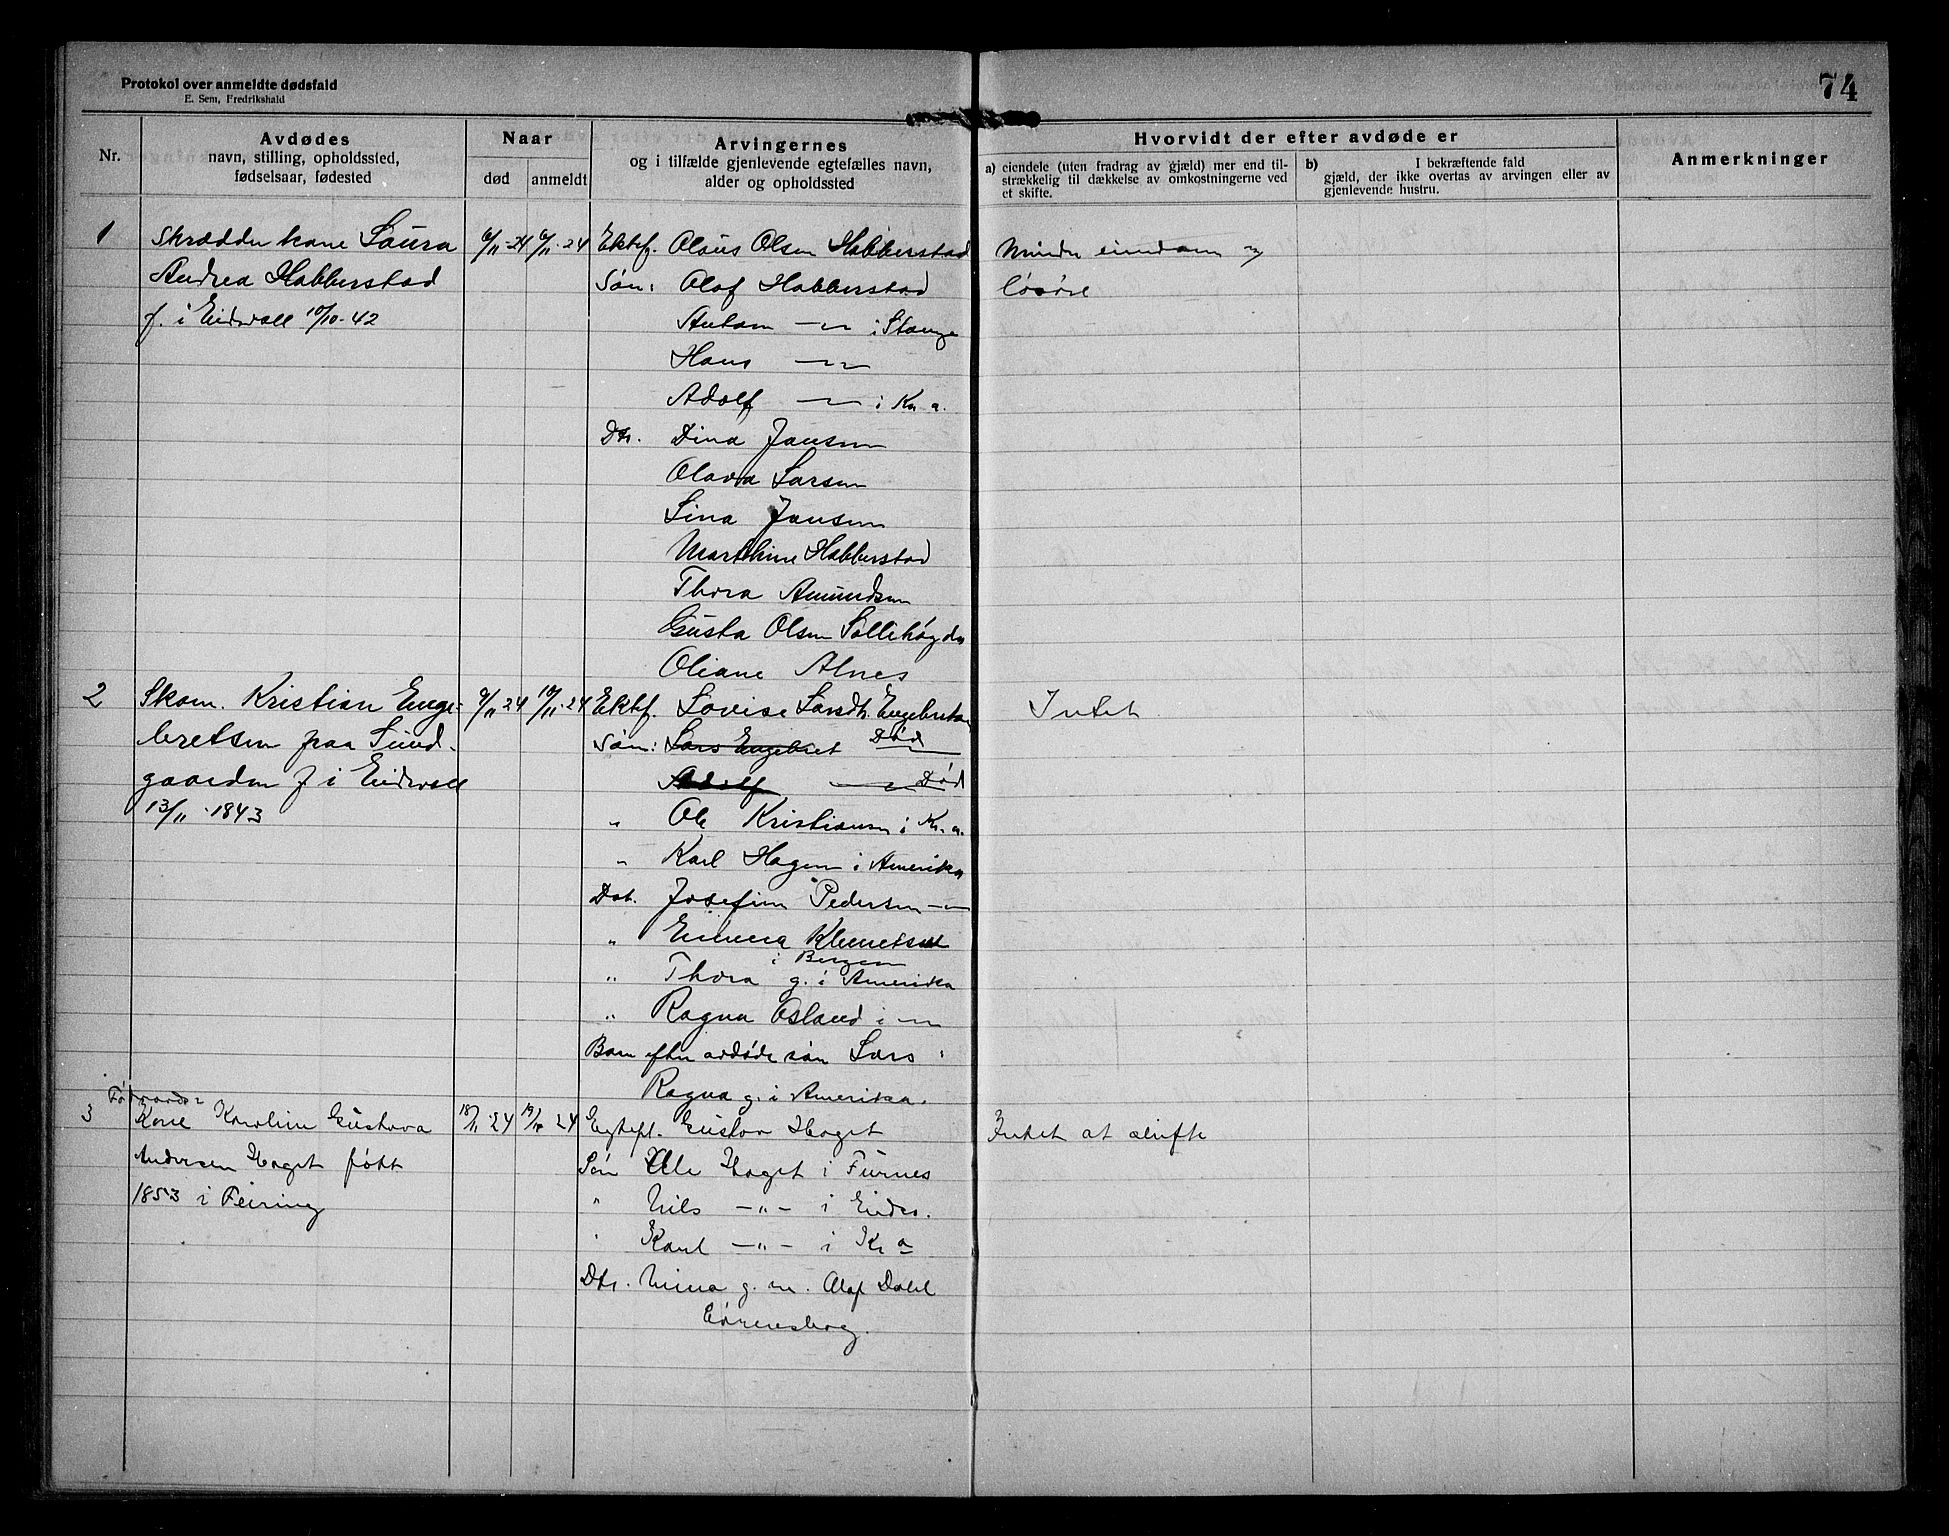 Protokol over anmeldte dødsfald
E. Sem, Fredrikshald
74
Nr.
Avdødes
navn, stilling, opholdssted,
fødselsaar, fødested
Naar
død
anmeldt
Arvingernes
og i tilfælde gjenlevende egtefælles navn,
alder og opholdssted
Hvorvidt der efter avdøde er
a) eiendele (uten fradrag av gjæld) mer end til-
strækkelig til dækkelse av omkostningerne ved
et skifte.
b) I bekræftende fald
gjæld, der ikke overtas av arvingen eller av
gjenlevende hustru.
Anmerkninger
1
Skrædder kone Laura
Andrea Habberstad
f. i Eidsvoll 10/10-42
6/11-24
6/11-24
Ektef. Olaus Olsen Habberstad
Søn: Olaf Habberstad
Anton -"- i Stange
Hans -"-
Adolf -"- i Kr.a.
Dtr. Dina Jansen
Olava Larsen
Lina Jansen
Marthine Habberstad
Thora Amundsen
Gusta Olsen Sollihøgda
Oliane Alnes
Mindre eiendom og
løsøre
2
Skom. Kristian Enge-
bretsen paa Sund-
gaarden f i Eidsvoll
13/11-1843
9/11-24
10/11-24
Ektef. Lovise Larsdtr. Engebretsen
Søn: Lars Engebret Død
Adolf -"- Død
" Ole Kristiansen i Kr.a.
" Karl Hagen i Amerika
Dat. Josefine Pedersen -"-
" Emma Klemetsen
i Bergen
" Thora g. i Amerika
" Ragna Osland i -"-
Barn efter avdøde søn Lars:
Ragna g. i Amerika.
Intet
3
Kone Karoline Gustava
Andersen Haget født
1853 i Feiring
18/11-24
19/11 24
Egtefl. Gustav Haget
Søn Ole Haget i Furnes
" Nils -"- i Eidsv.
" Karl -"- i Kr a
Dtr. Nina g. m. Olaf Dahl
Intet at skifte